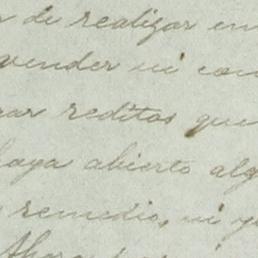 de realizar en
vender ni com
rar reditos que
haya abierto alg
remedio, ni
Ahora